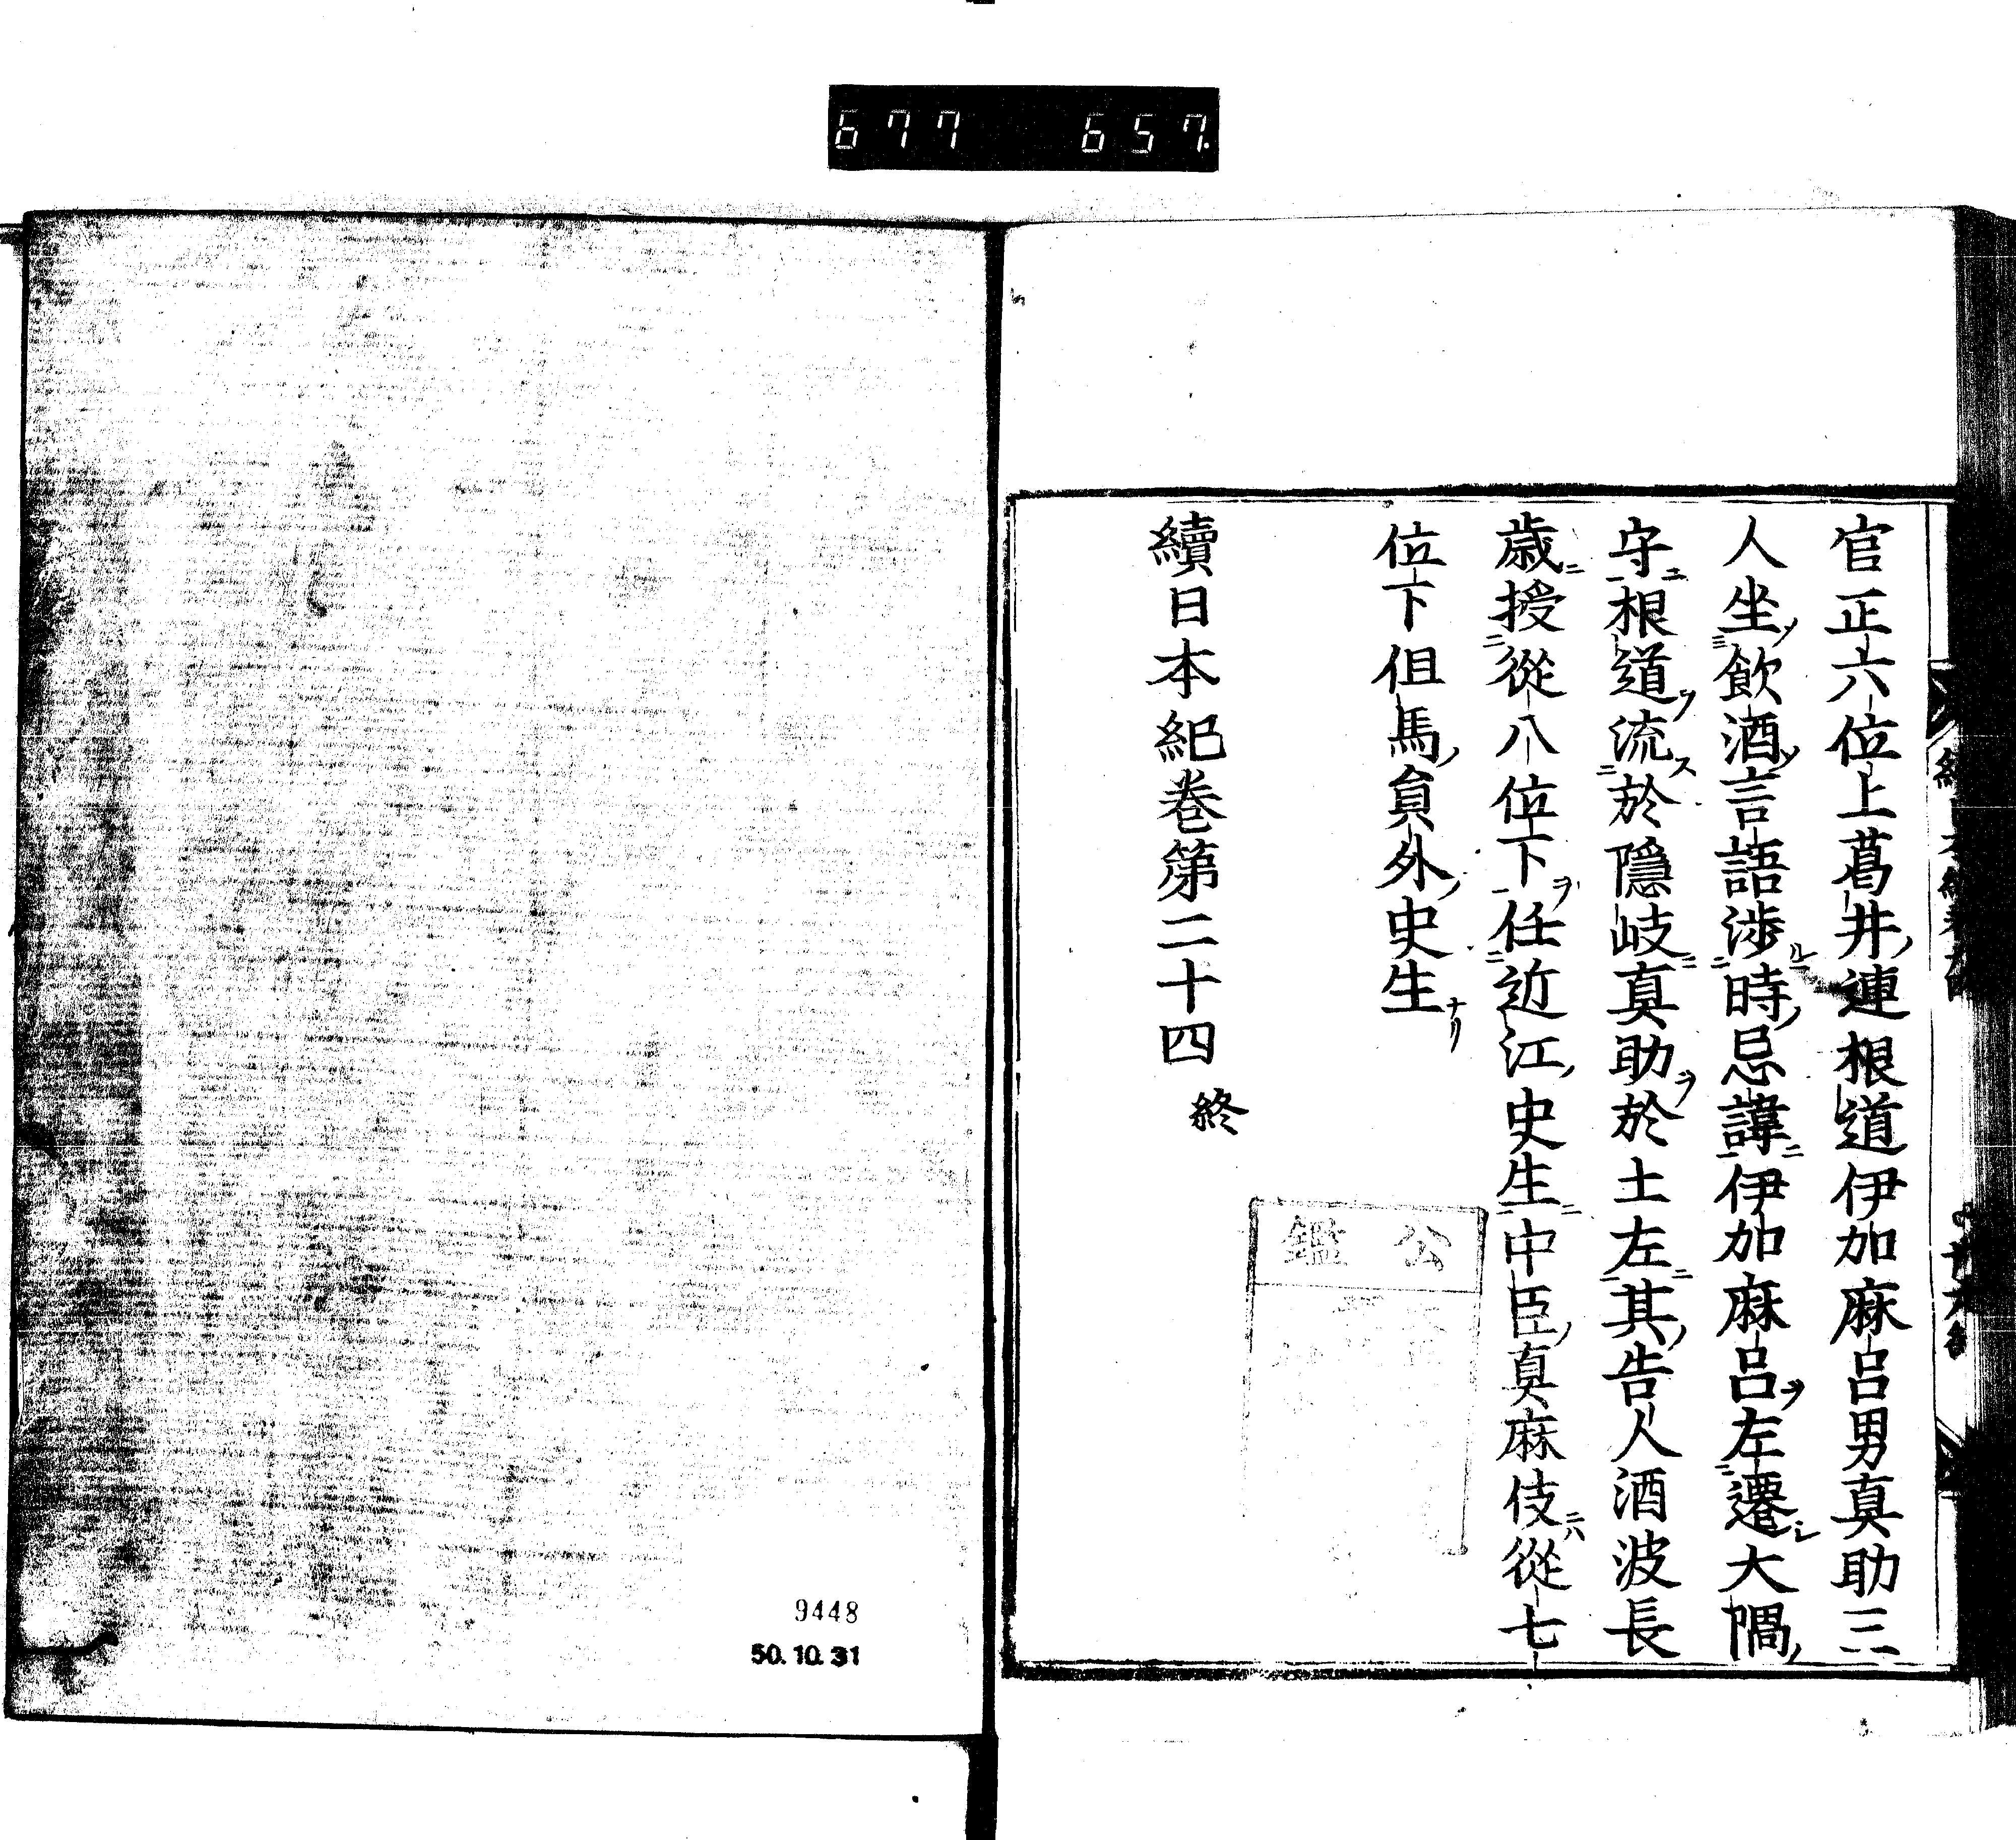 677 657.
官正六位上葛井連根道伊加麻呂男真助三
人坐飲酒言語渉時忌諱伊加麻呂左遷大隅
守根道流於隠岐真助於土左其告人酒波長
歳授從八位下任近江史生中臣真麻伎從七
位下但馬貟外史生
續日本紀巻第二十四 終
公鑑
9448
50.10.31